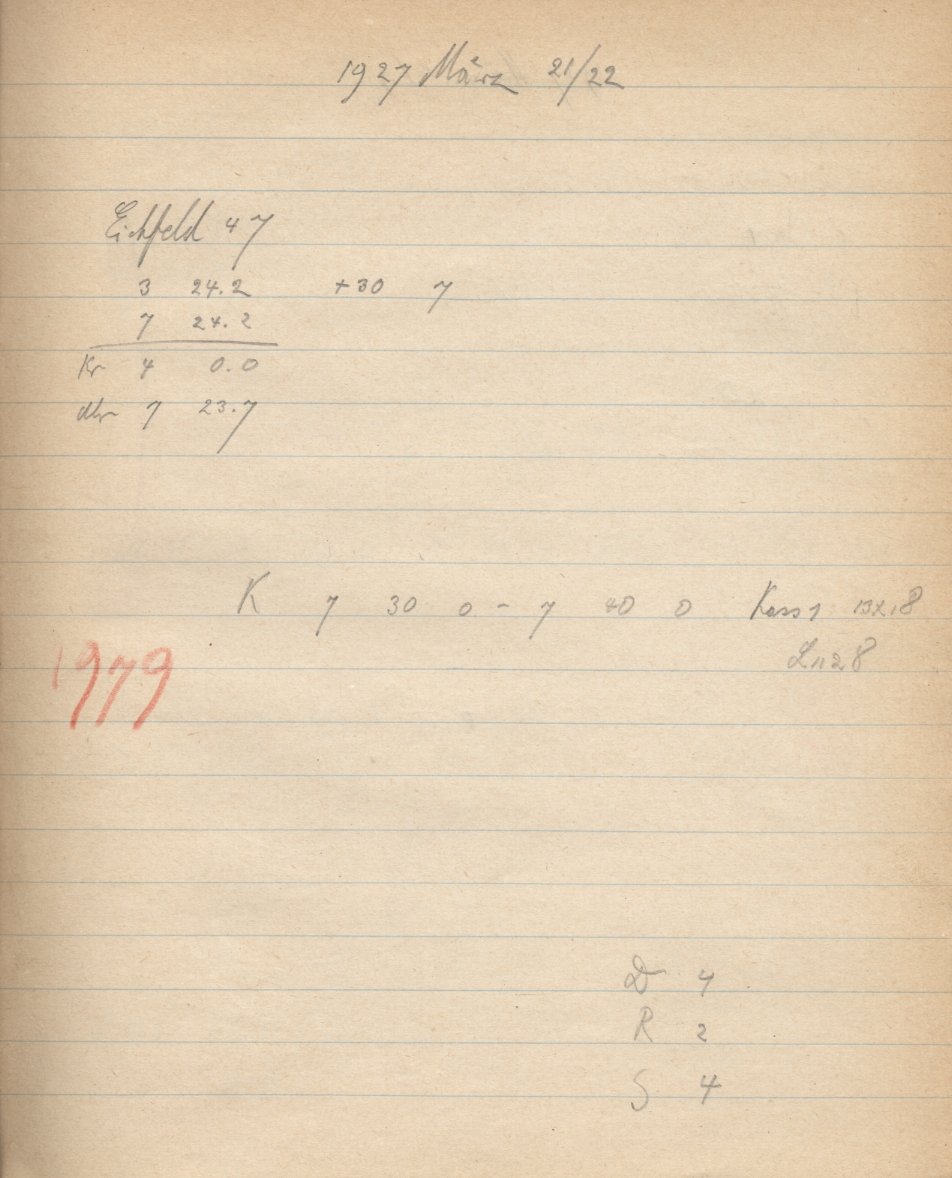 1927 März 21/22
Eichfeld 47
3 24.2 +30 7
7 24.2
Kr 4 0.0
Uhr 7 23.7
K 7 30 0 - 7 40 0 Kass 1
1979
D 4
R 2
S 4